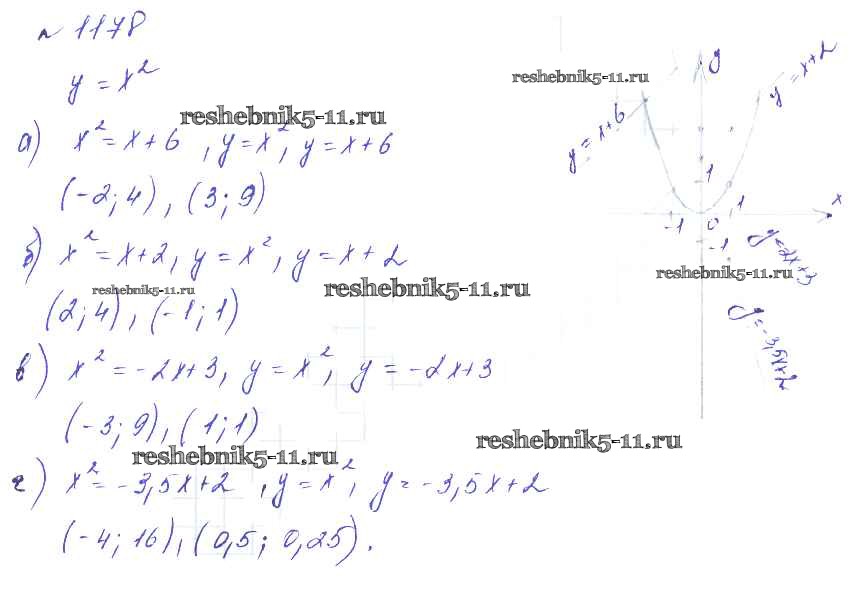 № 1178
y = x²
reshebnik5-11.ru
а) x² = x + 6 , y = x², y = x + 6
(-2; 4), (3; 9)
б) x² = x + 2, y = x², y = x + 2
reshebnik5-11.ru
reshebnik5-11.ru
(2; 4), (-1; 1)
в) x² = -2x + 3, y = x², y = -2x + 3
(-3; 9), (1; 1)
reshebnik5-11.ru
reshebnik5-11.ru
г) x² = -3,5x + 2 , y = x², y = -3,5x + 2
(-4; 16), (0,5; 0,25).
reshebnik5-11.ru
y
y = x + 2
y = x + 6
1
x
-1
0
1
-1
y = -2x + 3
reshebnik5-11.ru
y = -3,5x + 2